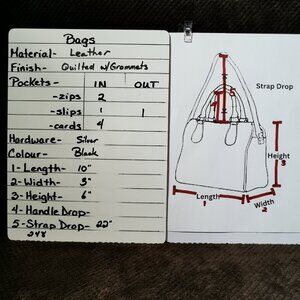 Bags
Material- Leather
Finish- Quilted w/Grommets
Pockets- IN OUT
-zips 2
-slips 1 1
-cards 4
Hardware- Silver
Colour- Black
1- Length- 10"
2- Width- 3"
3- Height- 6"
4- Handle Drop-
5- Strap Drop- 22"
248
Strap Drop
Height
3
Length
1
Width
2